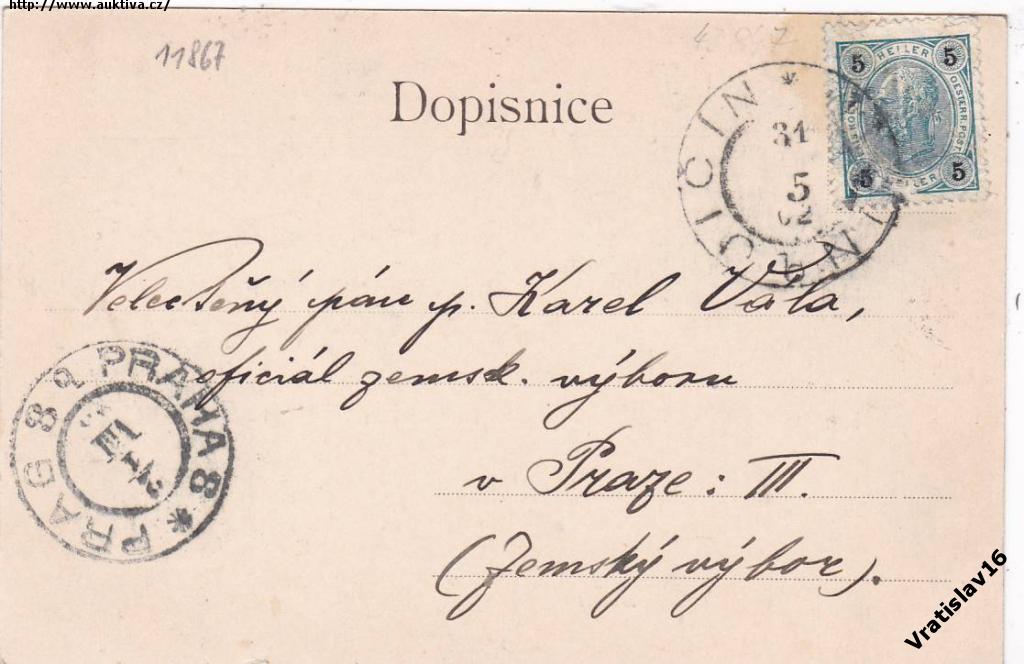 http://www.auktiva.cz/
11867
Dopisnice
5 HELLER 5
OESTERR. POST
5 HELLER 5
JICIN
31
5
02
Velectěný pán p. Karel Vala,
oficiál zemsk. výboru
v Praze: III.
(Zemský výbor).
PRAHA 8 * PRAG 8
III
Vratislav16